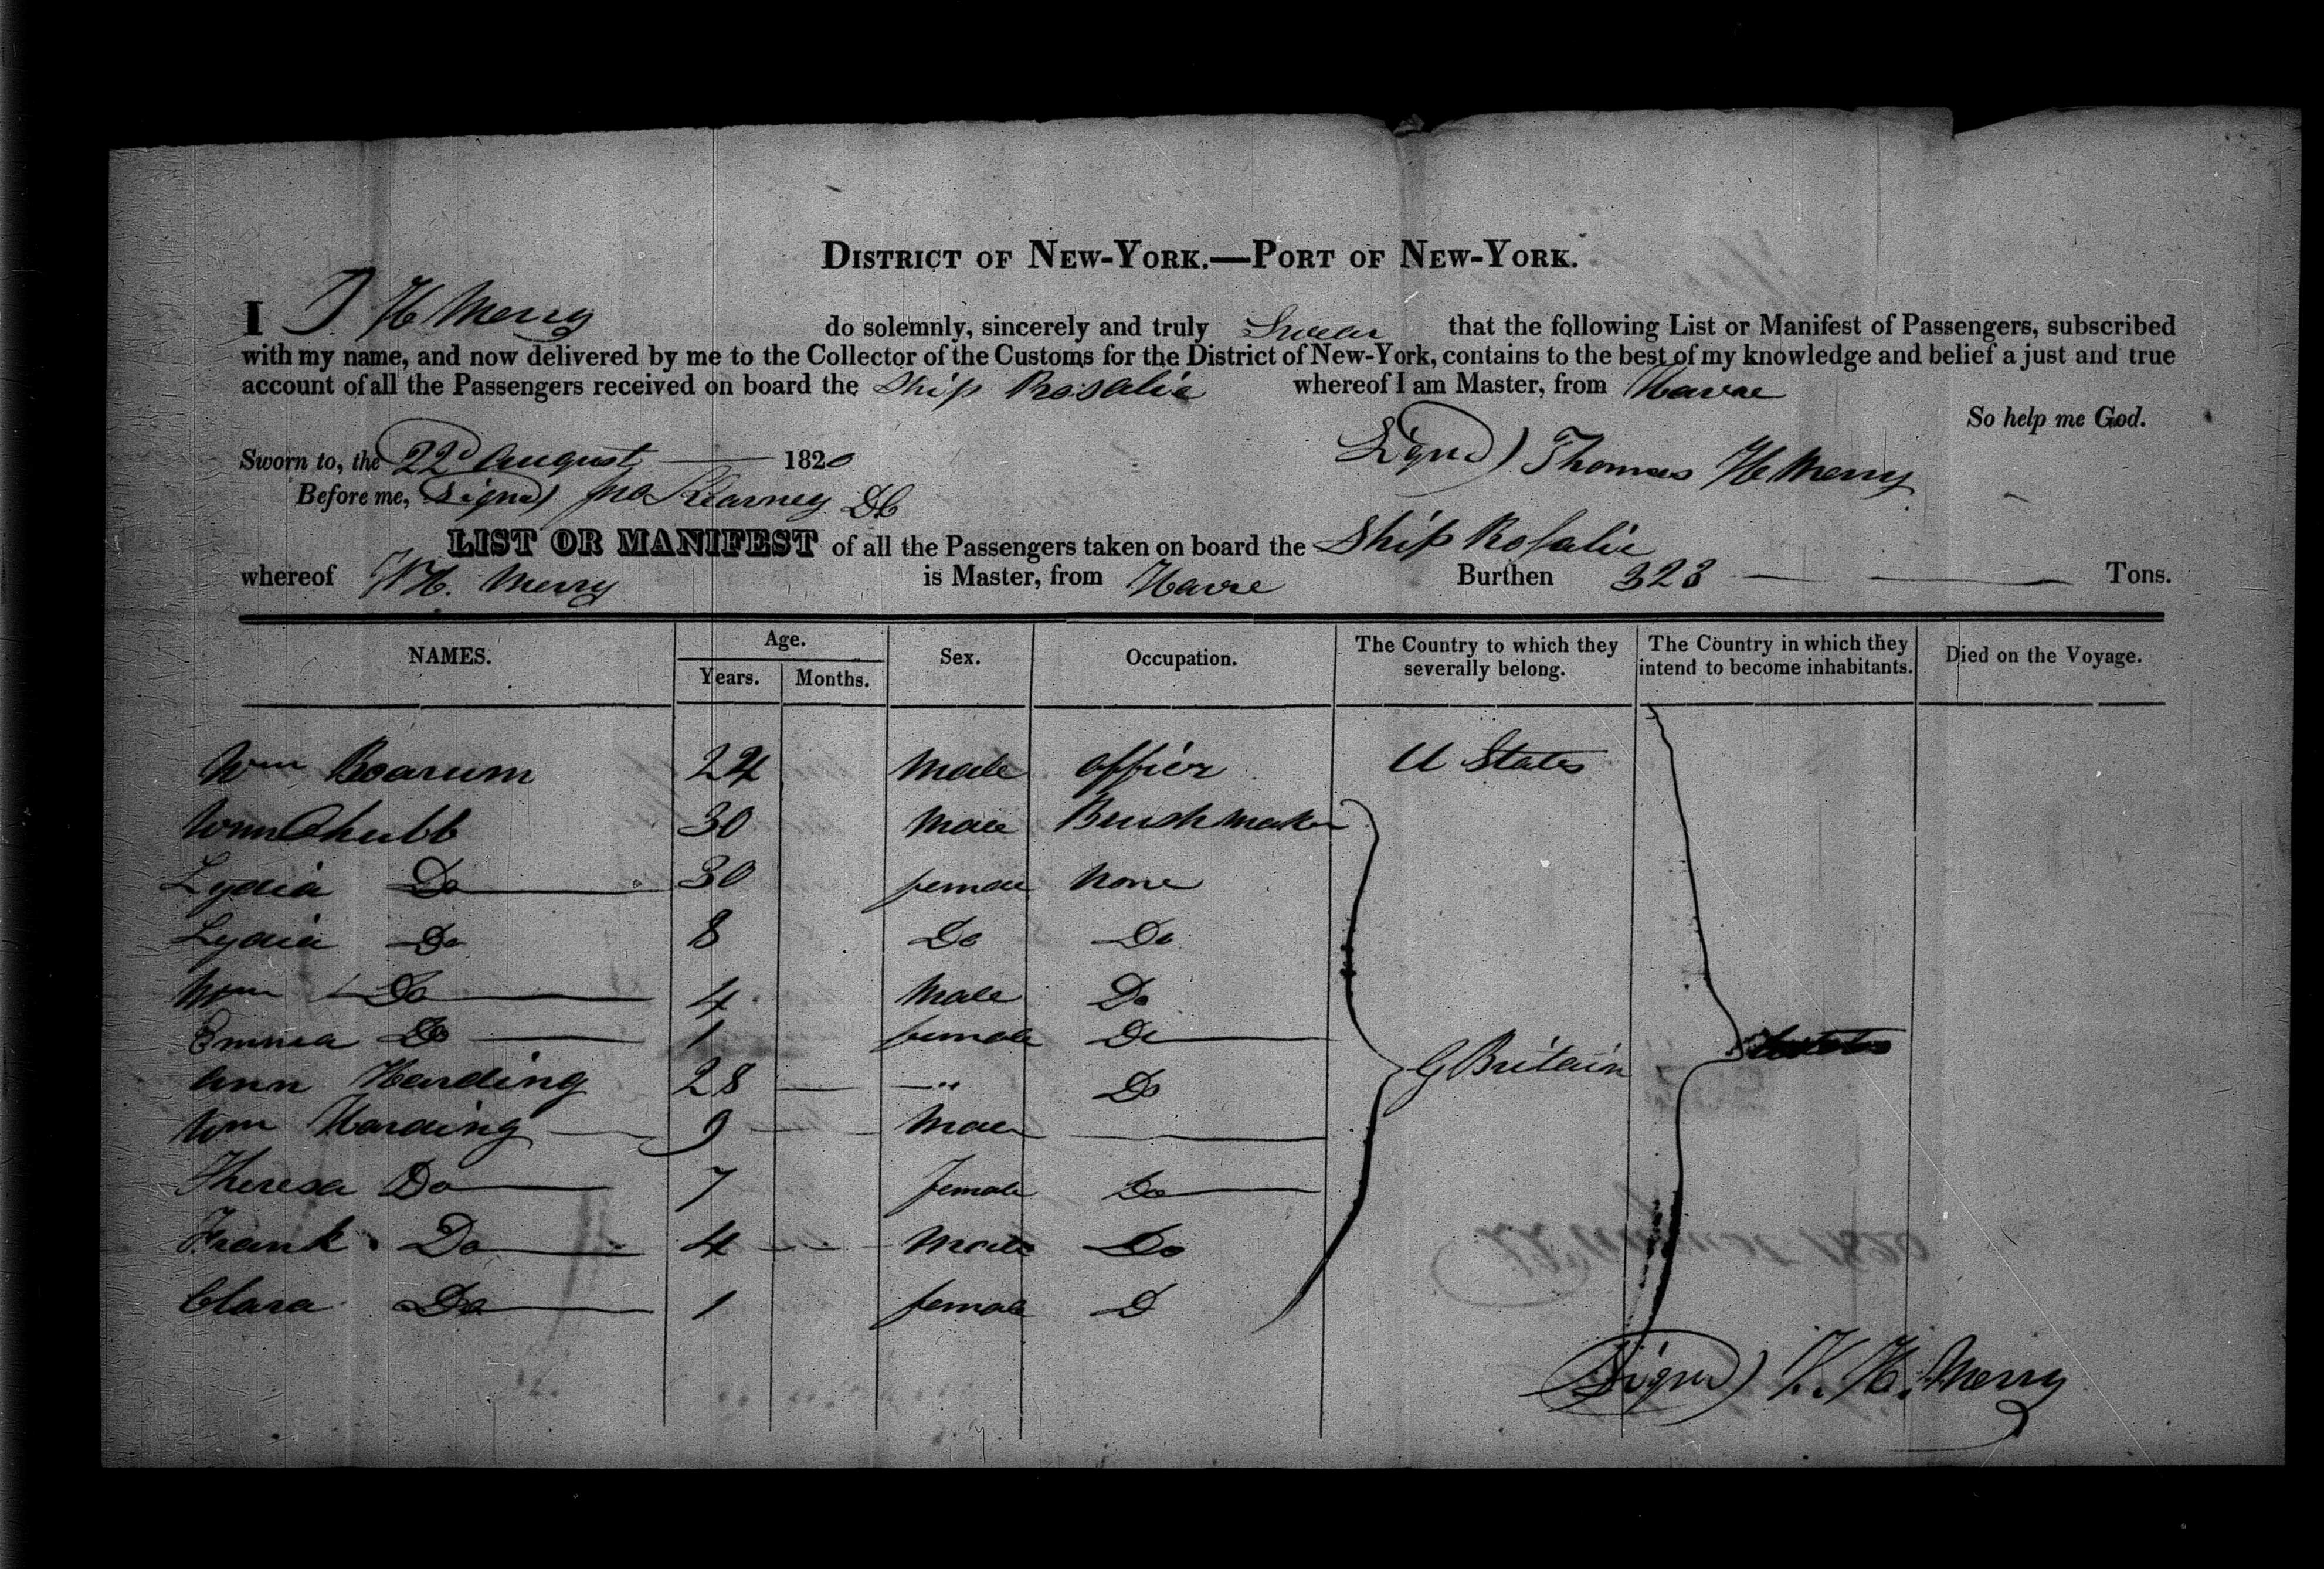 DISTRICT OF NEW-YORK.—PORT OF NEW-YORK.
I T. H Merry do solemnly, sincerely and truly Swear that the following List or Manifest of Passengers, subscribed
with my name, and now delivered by me to the Collector of the Customs for the District of New-York, contains to the best of my knowledge and belief a just and true
account of all the Passengers received on board the Ship Rosalie whereof I am Master, from Havre
So help me God.
Sworn to, the 22d August 1820
Signed) Thomas H Merry
Before me, Signed) Jno Kearney DC
LIST OR MANIFEST of all the Passengers taken on board the Ship Rosalie
whereof T H. Merry is Master, from Havre Burthen 323 Tons.
NAMES. Age. Years. Months. Sex. Occupation. The Country to which they severally belong. The Country in which they intend to become inhabitants. Died on the Voyage.
Wm Boarum 24 Male officer U States
Wm Chubb 30 Male Brushmaker
Lydia Do 30 female None
Lydia Do 8 Do Do
Wm Do 4 Male Do
Emma Do 1 female Do
Ann Harding 28 " Do G Britain
Wm Harding 9 Male
Theresa Do 7 female Do
Frank Do 4 Male Do
Clara Do 1 female D
Signed) T. H. Merry